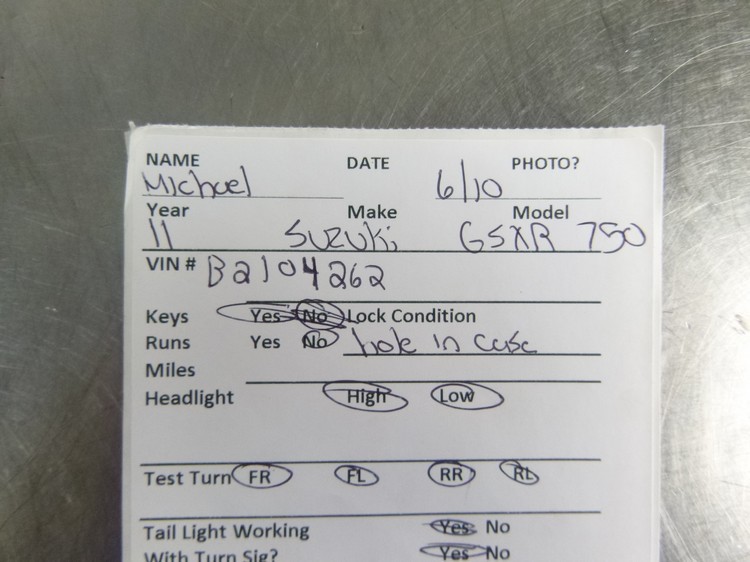 NAME DATE PHOTO?
Michael 6/10
Year Make Model
11 Suzuki GSXR 750
VIN # B2104262
Keys Yes No Lock Condition
Runs Yes No hole in case
Miles
Headlight High Low
Test Turn FR FL RR RL
Tail Light Working Yes No
With Turn Sig? Yes No